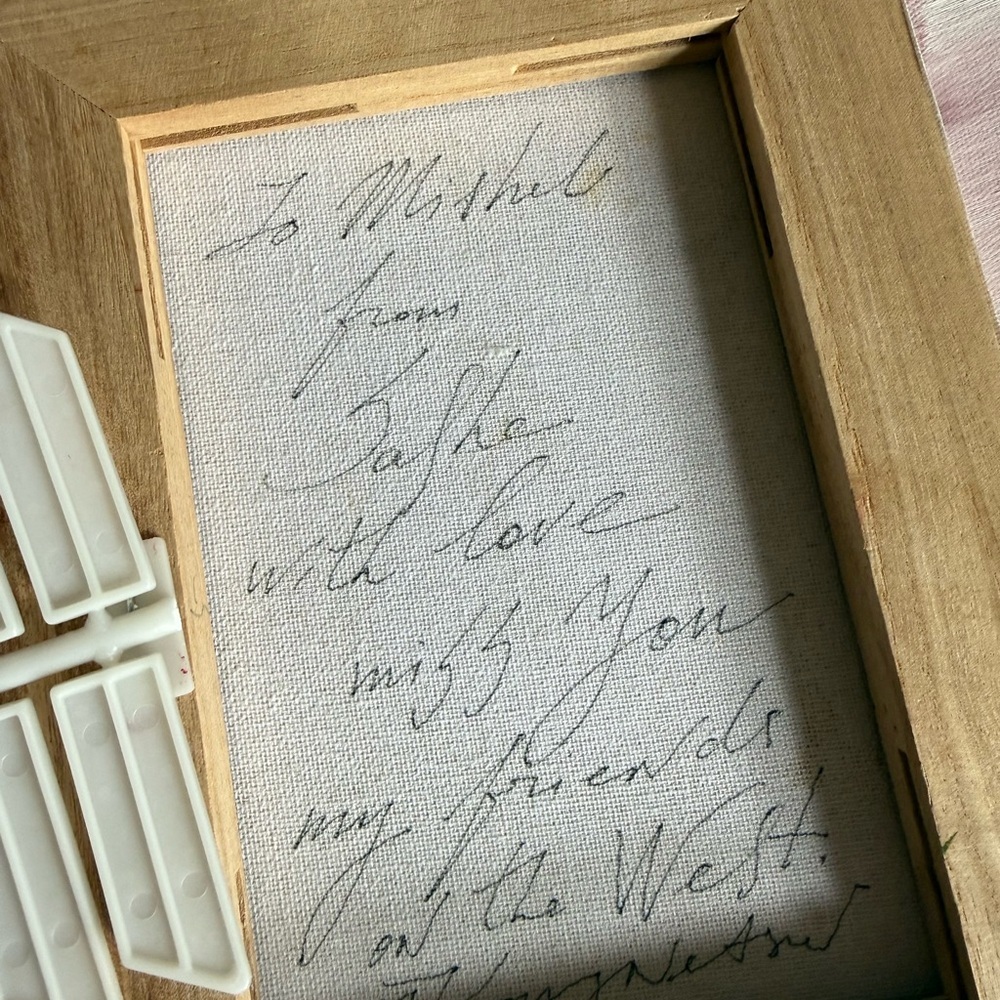 To Mishel
from
with love
miss You
my friends
on the West!